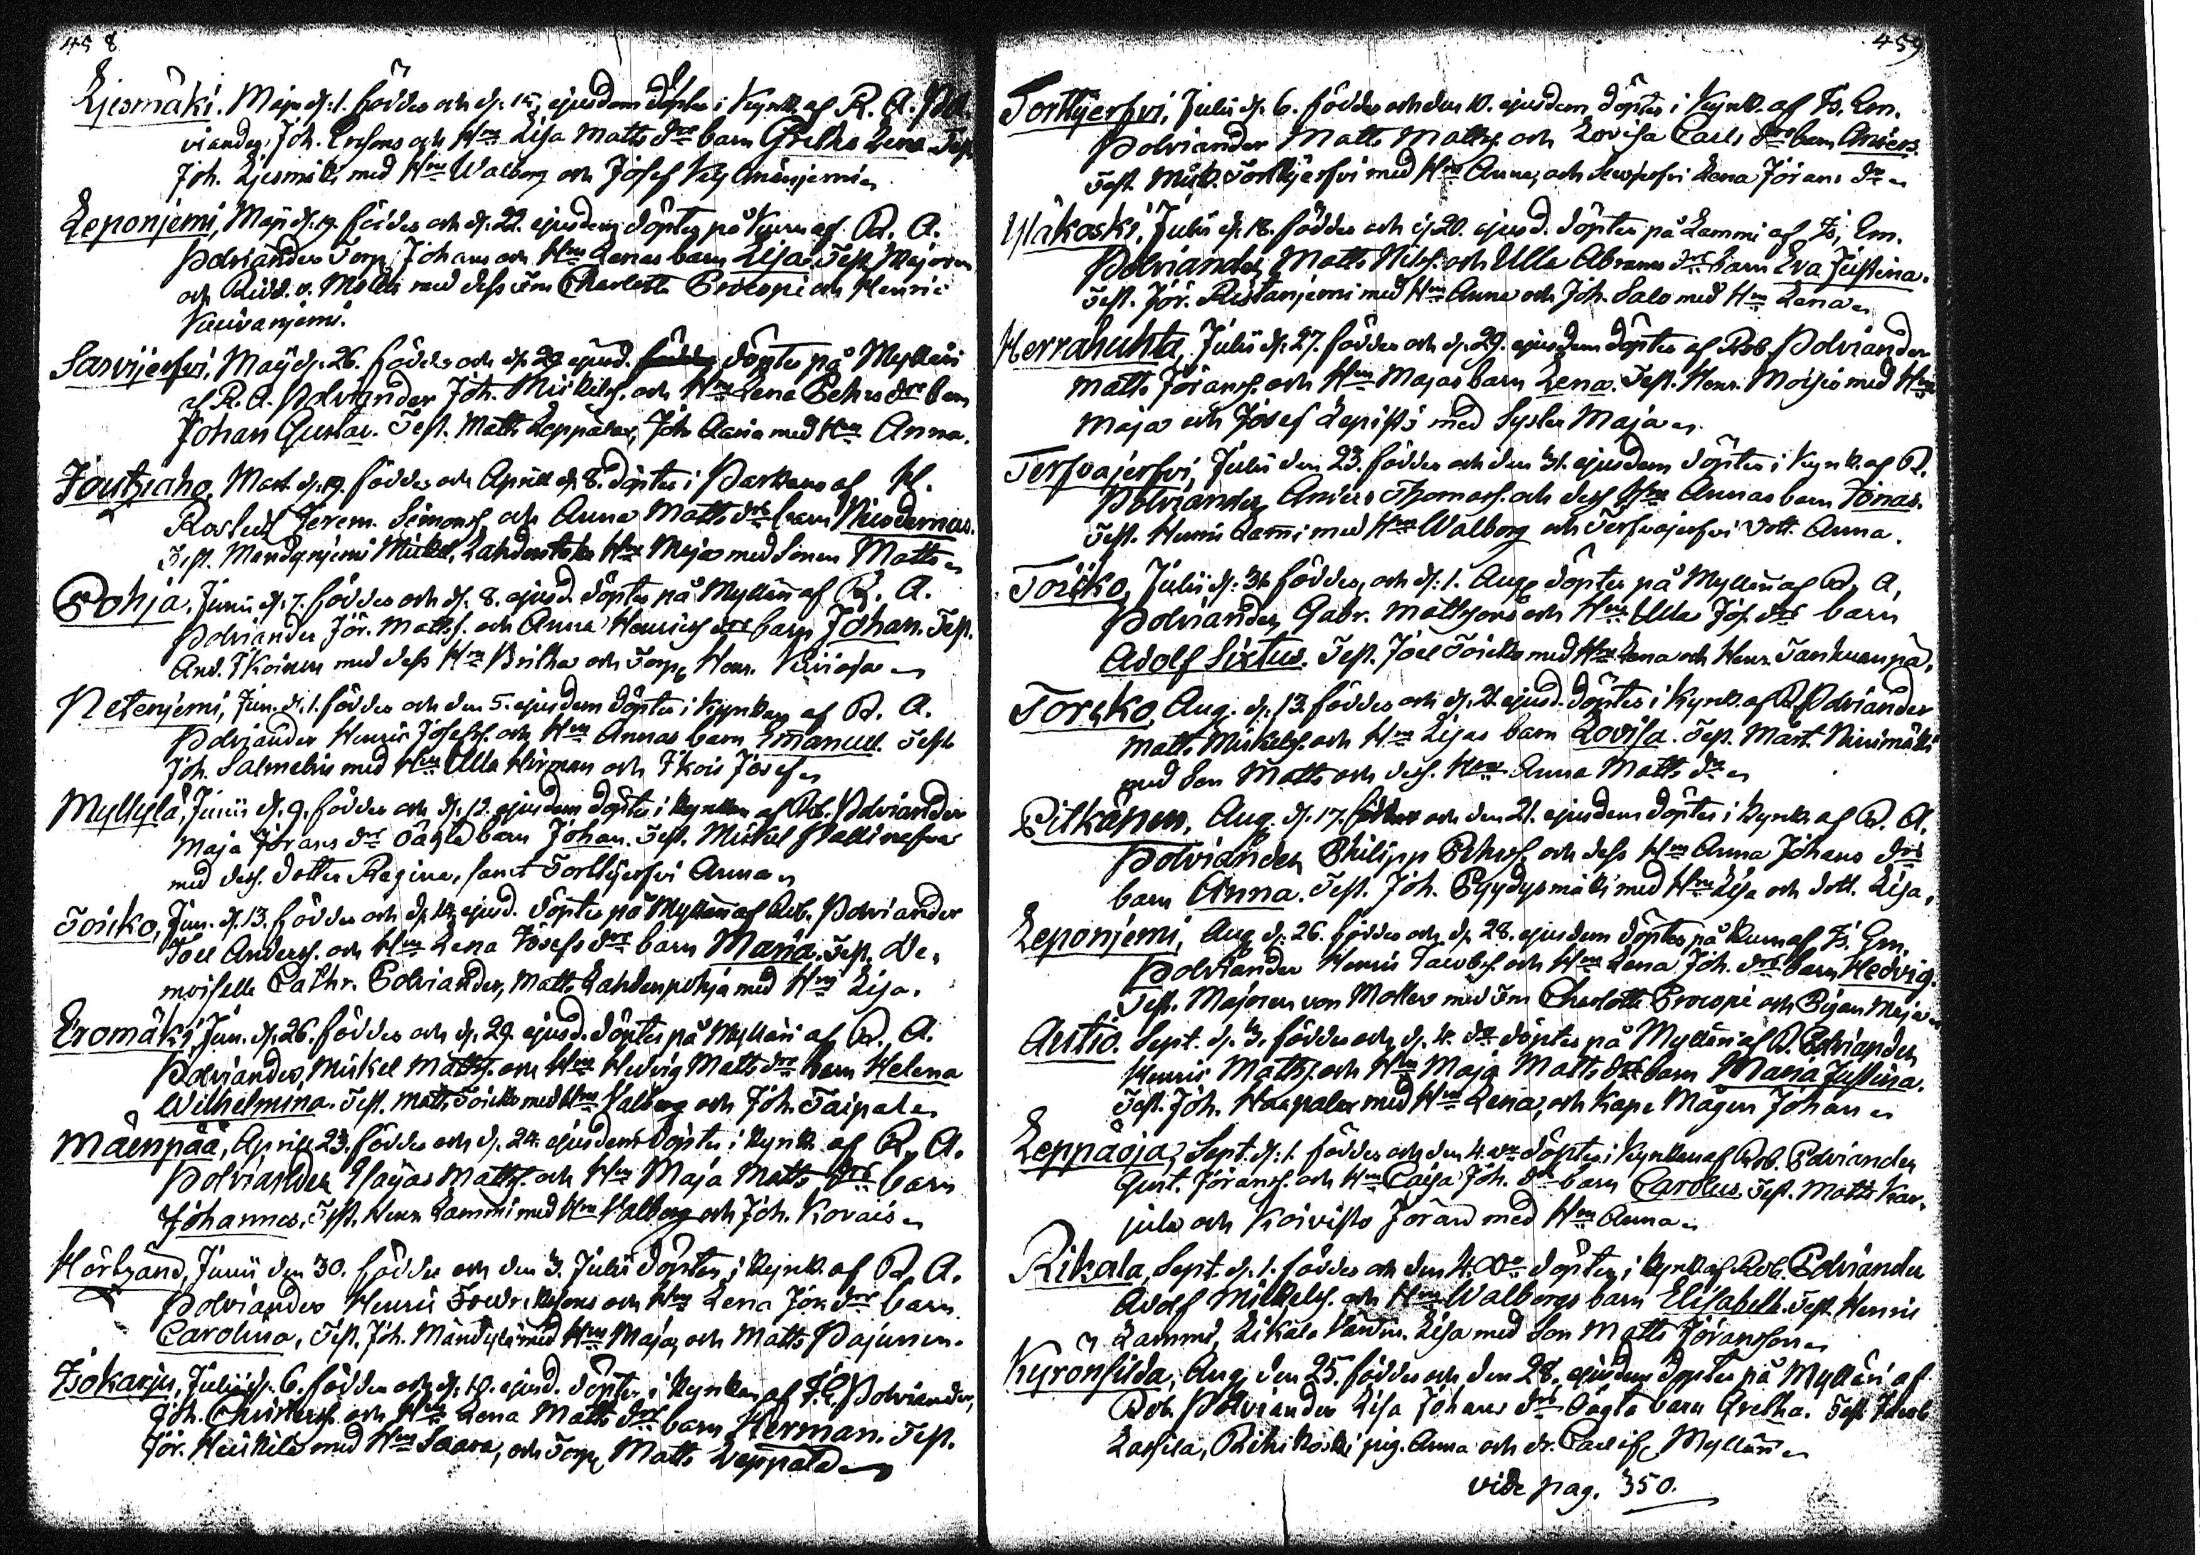 458
Ljesmäki. Maji d. 1. föddes och d. 15. ejusdem döptes i Kyrk. af R. A. Pol-
viander. Joh. Ersons och Hu Lisa Matts dr barn Gretha Lena. Test.
Joh. Ljesmäki med Hu Walborg och Josef
Leponjemi, Maji d. 19. föddes och d. 22. ejusdem döptes på Kuru af R. A.
Polviander Torp. Johans och Hu Lenas barn Lisa. Test. Majoren
och Ridd. v. Moller med dess Fru Charlotta Procopé och Henric
Kuivanjemi.
Sarvijerfvi, Maji d. 26. föddes och d. 29 ejusd. döptes på Mylläri
af R. A. Polviander Joh. Mickels. och Hu Lena Pehrs dr barn
Johan Gustav. Test. Matts Leppälax, Joh. med Hu Anna.
Joutziaho, Mart. d. 19. föddes och Aprill d. 8. döptes i Parkano af H.
Roslede Jerem. Simons. och Anna Matts dr barn Nicodemus.
Test. Mandanjemi Mickel, Hu Maja med Sonen Matts
Pohja, Junii d. 7. föddes och d. 8. ejusd. döptes på Mylläri af R. A.
Polviander Jör. Matts. och Anna Henrics dr barn Johan. Test.
And. Ikoinen med dess Hu Britha och Torp. Henr.
Netenjemi, Jun. d. 1. föddes och den 5. ejusdem döptes i Kyrkan af R. A.
Polviander Henric Josefs. och Hu Annas barn Emanuel. Test.
Joh. Salmelin med Hu Ulla Hirman och Ikois Josef
Myllylä, Junii d. 9. föddes och d. 12. ejusdem döptes i Kyrkan af Rob. Polviander
Maja Jörans dr oägta barn Johan. Test. Mickel
med dess dotter Regina, samt Torttijerfvi Anna
Toriko, Jun. d. 13. föddes och d. 14. ejusd. döptes på Mylläri af Rob. Polviander
Joel Anders. och Hu Lena Josefs dr barn Maria. Test. De-
moiselle Cathr. Polviander, Matts Lahdenpohja med Hu Lisa.
Eromäki, Jun. d. 26. föddes och d. 29. ejusd. döptes på Mylläri af R. A.
Polviander, Mickel Matts. och Hu Hedvig Matts dr barn Helena
Wilhelmina. Test. Matts Toriko med Hu Valborg och Joh. Taipale
Mäenpää, Aprill 23. föddes och d. 24. ejusdem döptes i Kyrk. af R. A.
Polviander Matts. och Hu Maja Matts dr barn
Johannes. Test. Henr. Lammi med Hu Valborg och Joh. Kovais
Junii den 30. föddes och den 3. Julii döptes i Kyrk. af R. A.
Polviander Henric Fredrikssons och Hu Lena Jör. dr barn
Carolina, Test. Joh. Mändylä med Hu Maja, och Matts Pajunen.
Isokarju, Julii d. 6. föddes och d. 10. ejusd. döptes i Kyrkan af Polviander,
Joh. Christers. och Hu Lena Matts dr barn Herman. Test.
Jör. Heickilä med Hu Saara, och Torp. Matts Leppälä
459
Torttijerfvi, Julii d. 6. föddes och den 10. ejusdem döptes i Kyrk. af Is. Em.
Polviander Matts Matts. och Lovisa Carls dr barn Anders.
Test. Mick. Torttijerfvi med Hu Anna, och Lena Jörans dr
Yläkoski, Julii d. 18. föddes och d. 20. ejusd. döptes på Lammi af Is. Em.
Polviander, Matts Nils. och Ulla Abrams dr barn Eva Justina.
Test. Jör. Ristanjemi med Hu Anna och Joh. Salo med Hu Lena
Herrahuhta, Julii d. 27. föddes och d. 29. ejusdem döptes af Rob. Polviander
Matts Jörans. och Hu Majas barn Lena. Test. Henr. Moisio med Hu
Maja och Josef Lepistö med Syster Maja
Terfvajerfvi, Julii den 23. föddes och den 31. ejusdem döptes i Kyrk. af R.
Polviander, Anders Thomas. och dess Hu Annas barn Jonas.
Test. Henric Lammi med Hu Walborg och Terfvajerfvi dott. Anna.
Toriko, Julii d. 31. föddes, och d. 1. Aug. döptes på Mylläri af R. A.
Polviander, Gabr. Mattssons och Hu Ulla Jos. dr barn
Adolf Sixtus. Test. Joel Toriko med Hu Lena och Henr. Tankuanpä.
Toricko, Aug. d. 13. föddes och d. 21. ejusd. döptes i Kyrk. af R. Polviander
Matts Mickels. och Hu Lisas barn Lovisa. Test. Mårt. Niinimäki
med Son Matts och dess Hu Anna Matts dr
Pitkänen, Aug. d. 17. föddes och den 21. ejusdem döptes i Kyrk. af R. A.
Polviander Philipp Pehrs. och dess Hu Anna Johans dr
barn Anna. Test. Joh. Pyydysmäki med Hu Lisa och dott. Lisa.
Leponjemi, Aug. d. 26. föddes och d. 28. ejusdem döptes på Kuru af Is. Em.
Polviander Henric Jacobs. och Hu Lena Joh. dr barn Hedvig.
Test. Majoren von Moller med Fru Charlotta Procopé och Pigan Maja
Autio. Sept. d. 3. föddes och d. 4. do döptes på Mylläri af R. Polviander
Henric Matts. och Hu Maja Matts dr barn Maria Justina.
Test. Joh. Haapala med Hu Lena, och Kapa Mågen Johan
Leppäoja, Sept. d. 1. föddes och den 4. do döptes i Kyrkan af Rob. Polviander
Gust. Jörans. och Hu Caisa Joh. dr barn Carolus. Test. Matts Kar-
jula och Koivisto Jöran med Hu Anna
Rikala, Sept. d. 1. föddes och den 4. do döptes i Kyrk. af Rob. Polviander
Adolf Mickels. och Hu Walborgs barn Elisabeth. Test. Henric
Lammi, Rikala Lisa med Son Matts Jöransson
Kyrönsilda, Aug. den 25. föddes och den 28. ejusdem döptes på Mylläri af
Rob. Polviander Lisa Johans dr oägta barn Gretha. Test. Jacob
Lassila, Rihikoski pig. Anna och dr. Carl if. Mylläri
vide pag. 350.